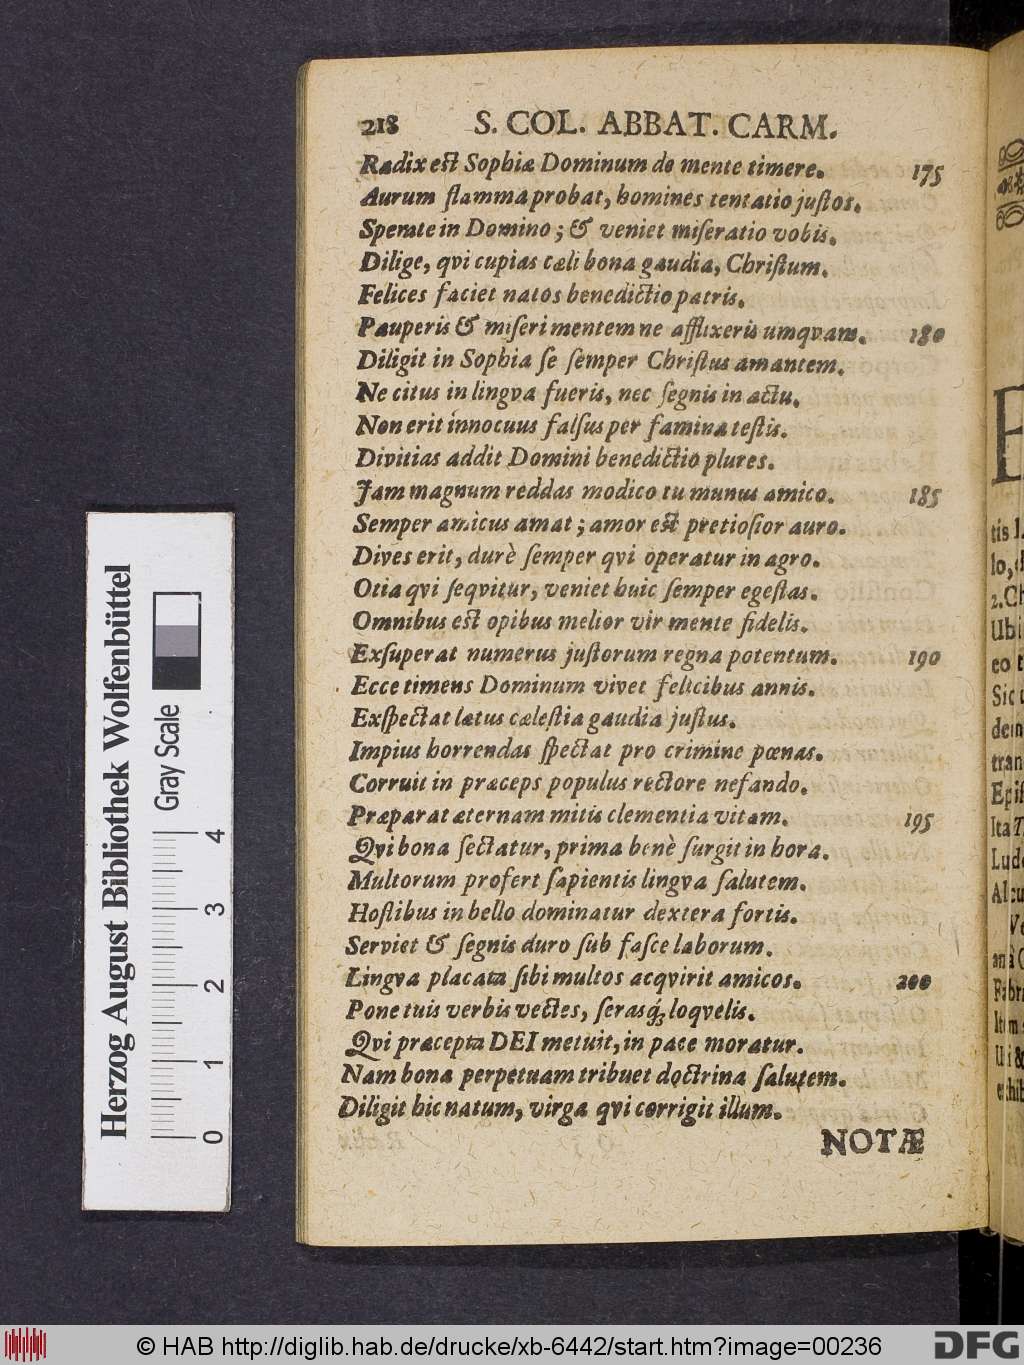 218 S. COL. ABBAT. CARM.
Radix eſt Sophiæ Dominum de mente timere. 175
Aurum flamma probat, homines tentatio juſtos.
Sperate in Domino; & veniet miſeratio vobis.
Dilige, qvi cupias cæli bona gaudia, Chriſtum.
Felices faciet natos benedictio patris.
Pauperis & miſeri mentem ne afflixeris umqvam. 180
Diligit in Sophia ſe ſemper Chriſtus amantem.
Ne citus in lingva fueris, nec ſegnis in actu.
Non erit innocuus falſus per famina teſtis.
Divitias addit Domini benedictio plures.
Jam magnum reddas modico tu munus amico. 185
Semper amicus amat; amor eſt pretioſior auro.
Dives erit, durè ſemper qvi operatur in agro.
Otia qvi ſeqvitur, veniet huic ſemper egeſtas.
Omnibus eſt opibus melior vir mente fidelis.
Exſuperat numerus juſtorum regna potentum. 190
Ecce timens Dominum vivet felicibus annis.
Exſpectat lætus cæleſtia gaudia juſtus.
Impius horrendas ſpectat pro crimine pœnas.
Corruit in præceps populus rectore nefando.
Præparat æternam mitis clementia vitam. 195
Qvi bona ſectatur, prima benè ſurgit in hora.
Multorum profert ſapientis lingva ſalutem.
Hoſtibus in bello dominatur dextera fortis.
Serviet & ſegnis duro ſub faſce laborum.
Lingva placata ſibi multos acqvirit amicos. 200
Pone tuis verbis vectes, ſerasq́ꝫ loqvelis.
Qvi præcepta DEI metuit, in pace moratur.
Nam bona perpetuam tribuet doctrina ſalutem.
Diligit hic natum, virga qvi corrigit illum.
NOTÆ
tis
lo,
2. Ch
Ubi
eo
Sic
dein
tran
Epiſ
Ita
Lud
Alcu
Ve
Fabri
Herzog August Bibliothek Wolfenbüttel
Gray Scale
0 1 2 3 4
© HAB http://diglib.hab.de/drucke/xb-6442/start.htm?image=00236
DFG